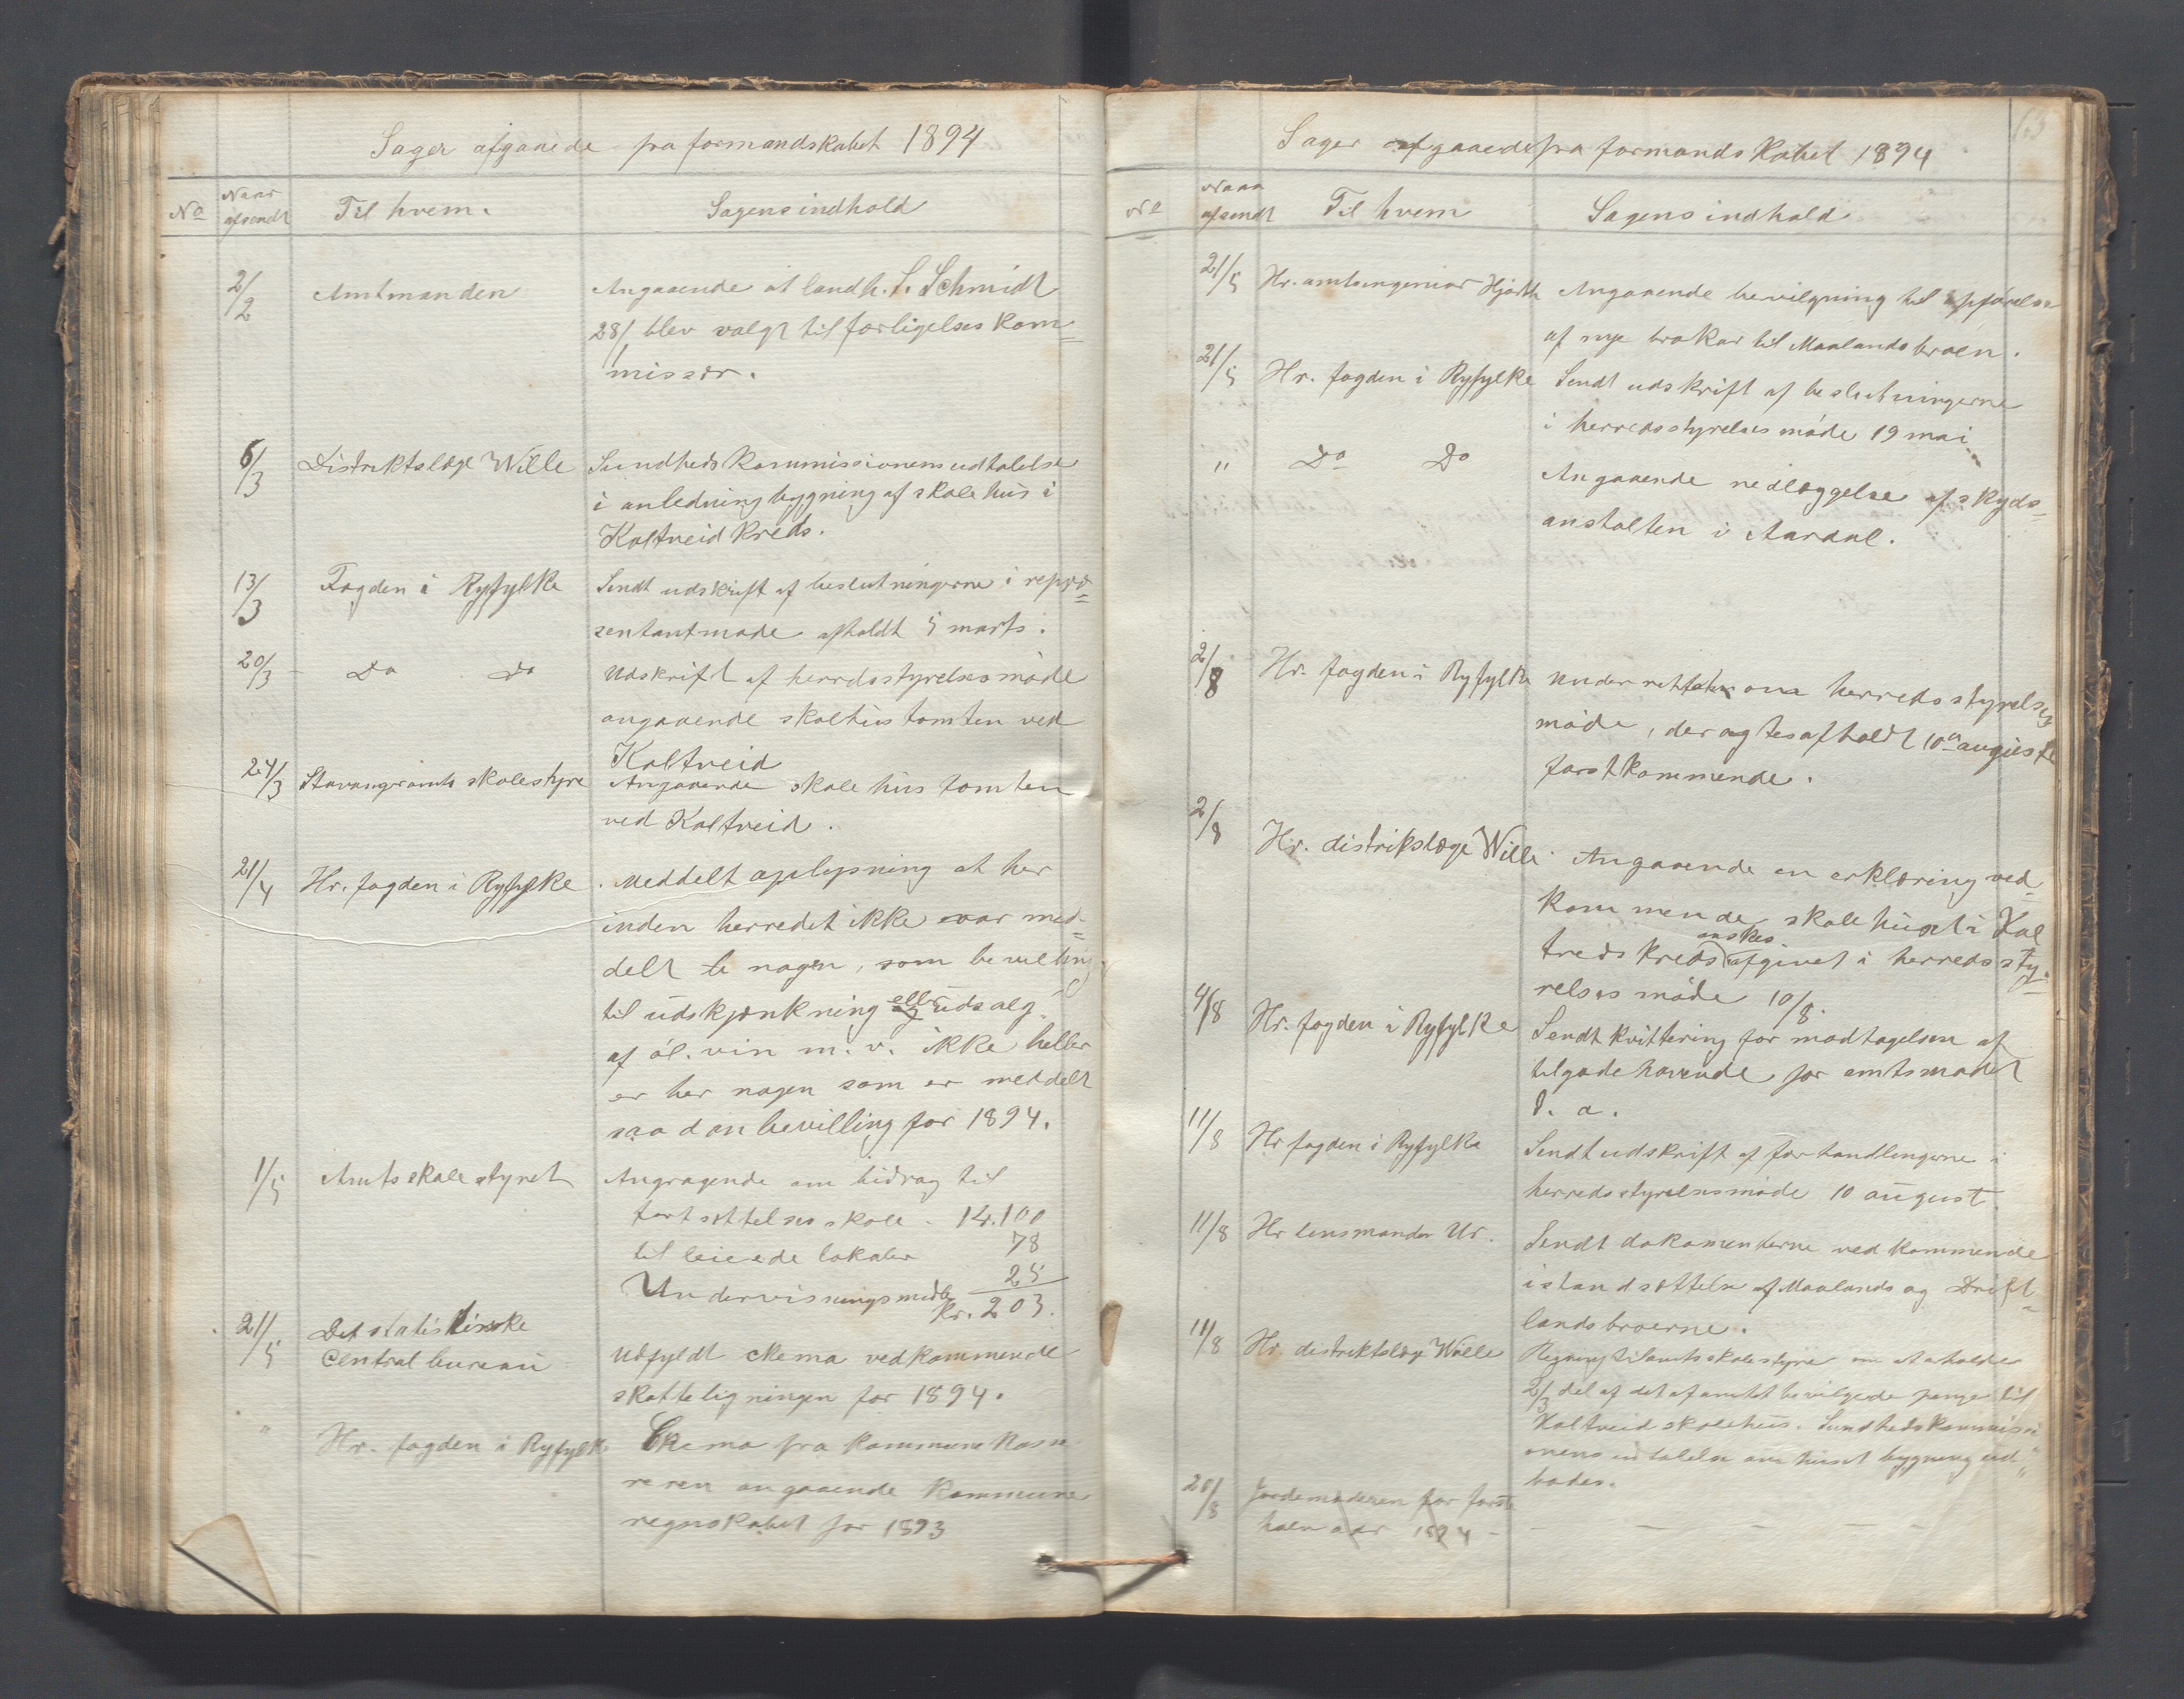 Sager afgaaede fra formandskabet 1894
No Naar afsendt Til hvem. Sagens indhold
2/2 Amtmanden Angaaende at landh. S. Schmidt
28/1 blev valgt til forligelses kom=
missær.
6/3 Distriktslæge Wille Sundhedskommissionens udtalelse
i anledning bygning af skolehus i
Kaltveid kreds.
13/3 Fogden i Ryfylke Sendt udskrift af beslutningerne i repræ=
sentantmøde afholdt 5 marts.
20/3 Do Do Udskrift af herredsstyrelsesmøde
angaaende skolhustomten ved
Kaltveid
24/3 Stavanger amts skolestyre Angaaende skolehustomten
ved Kaltveid.
21/4 Hr. fogden i Ryfylke. Meddelt oplysning at her
inden herredet ikke var med=
delt te nogen, som bevilling
til udskjænkning eller udsalg
af øl. vin m. v. ikke heller
er her nogen som er meddelt
saadan bevilling for 1894.
1/5 Amtsskolestyret Angragende om bidrag til
fortsættelsesskole - 14.100
til leiede lokaler 78
Undervisningsmidler 25
Kr. 203.
21/5 Det statistiske
Centralbureau Udfyldt skema vedkommende
skatteligningen for 1894.
" Hr. fogden i Ryfylke Skema fra kommunekasse
reren angaaende kommune
regnskabet for 1893
63
Sager afgaaede fra formandskabet 1894
No Naar afsendt Til hvem Sagens indhold
21/5 Hr. amtsingeniør Hjorth Angaaende bevilgning til opførelse
af nye brokar til Maalandsbroen.
21/5 Hr. fogden i Ryfylke Sendt udskrift af beslutningerne
i herredsstyrelses møde 19 mai
" Do Do Angaaende nedlæggelse af skyds=
anstalten i Aardal.
2/8 Hr. fogden i Ryfylke Underrettet om herredsstyrelses
møde, der agtes afholdt 10de august
førstkommende.
2/8 Hr. distrikslæge Wille Angaaende en erklæring ved=
kommende skolehuset i Kal
treds kreds ønskes afgivet i herredssty=
relses møde 10/8.
4/8 Hr. fogden i Ryfylke Sendt kvittering for modtagelsen af
tilgodehavende for amtsmødet
d. a.
11/8 Hr fogden i Ryfylke Sendt udskrift af forhandlingerne i
herredsstyrelsesmøde 10 august
11/8 Hr lensmanden Ur. Sendt dokomenterne vedkommende
istandsættelse af Maalands og Drift=
landsbroerne.
11/8 Hr. distriktslæge Wille Regning til amtsskolestyre om at erholde
2/3 del af det af amtet bevilgede penge til
Kaltveid skolehus. Sundhedskommissi
onens udtalelse om huset bygning ud"
bades.
20/8 Jordemoderen for første
halvaar 1894 - — — — —